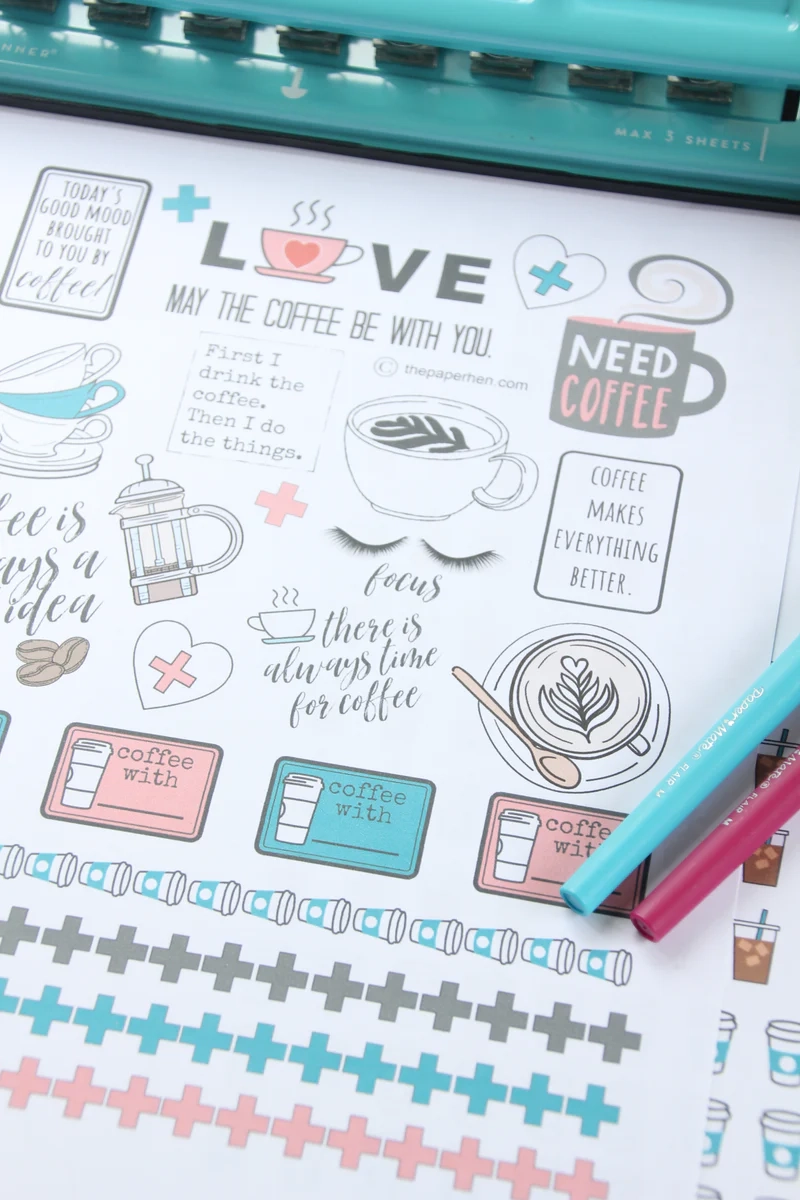 MAX 3 SHEETS
TODAY'S
GOOD MOOD
BROUGHT
TO YOU BY
coffee!
LOVE
MAY THE COFFEE BE WITH YOU.
© thepaperhen.com
NEED
COFFEE
First I
drink the
coffee.
Then I do
the things.
COFFEE
MAKES
EVERYTHING
BETTER.
is
a
idea
focus
there is
always time
for coffee
coffee
with
coffee
with
Paper Mate
FLAIR M
FLAIR M